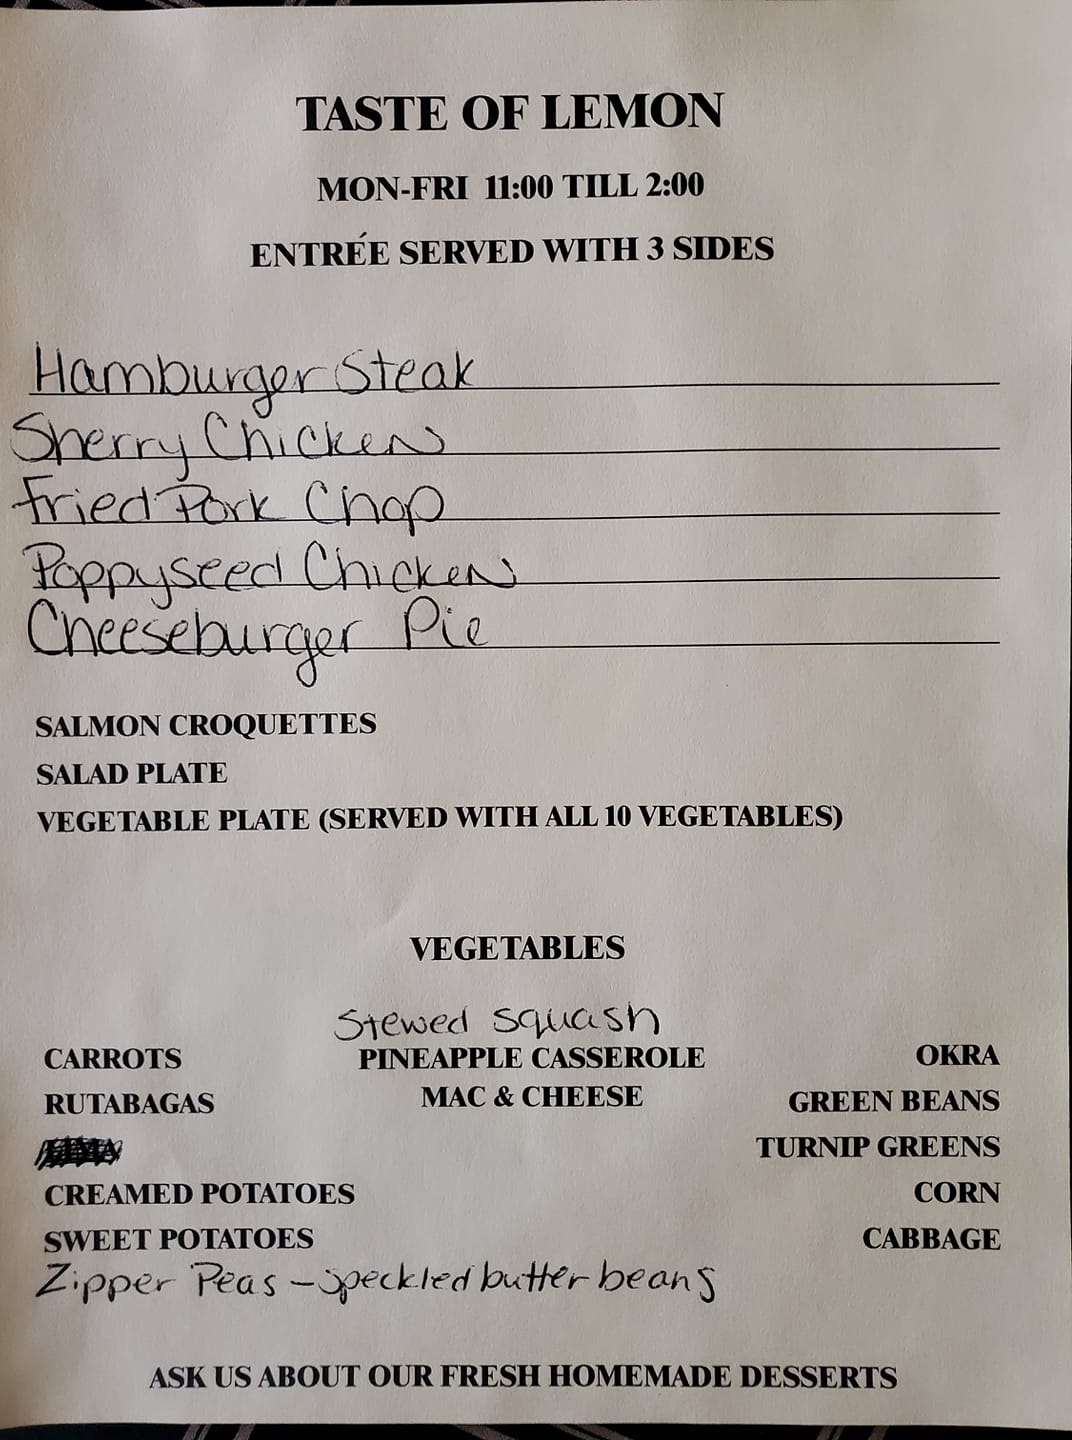 TASTE OF LEMON
MON-FRI 11:00 TILL 2:00
ENTRÉE SERVED WITH 3 SIDES
Hamburger Steak
Sherry Chicken
Fried Pork Chop
Poppyseed Chicken
Cheeseburger Pie
SALMON CROQUETTES
SALAD PLATE
VEGETABLE PLATE (SERVED WITH ALL 10 VEGETABLES)
VEGETABLES
Stewed squash
CARROTS PINEAPPLE CASSEROLE OKRA
RUTABAGAS MAC & CHEESE GREEN BEANS
TURNIP GREENS
CREAMED POTATOES CORN
SWEET POTATOES CABBAGE
Zipper Peas - speckled butter beans
ASK US ABOUT OUR FRESH HOMEMADE DESSERTS